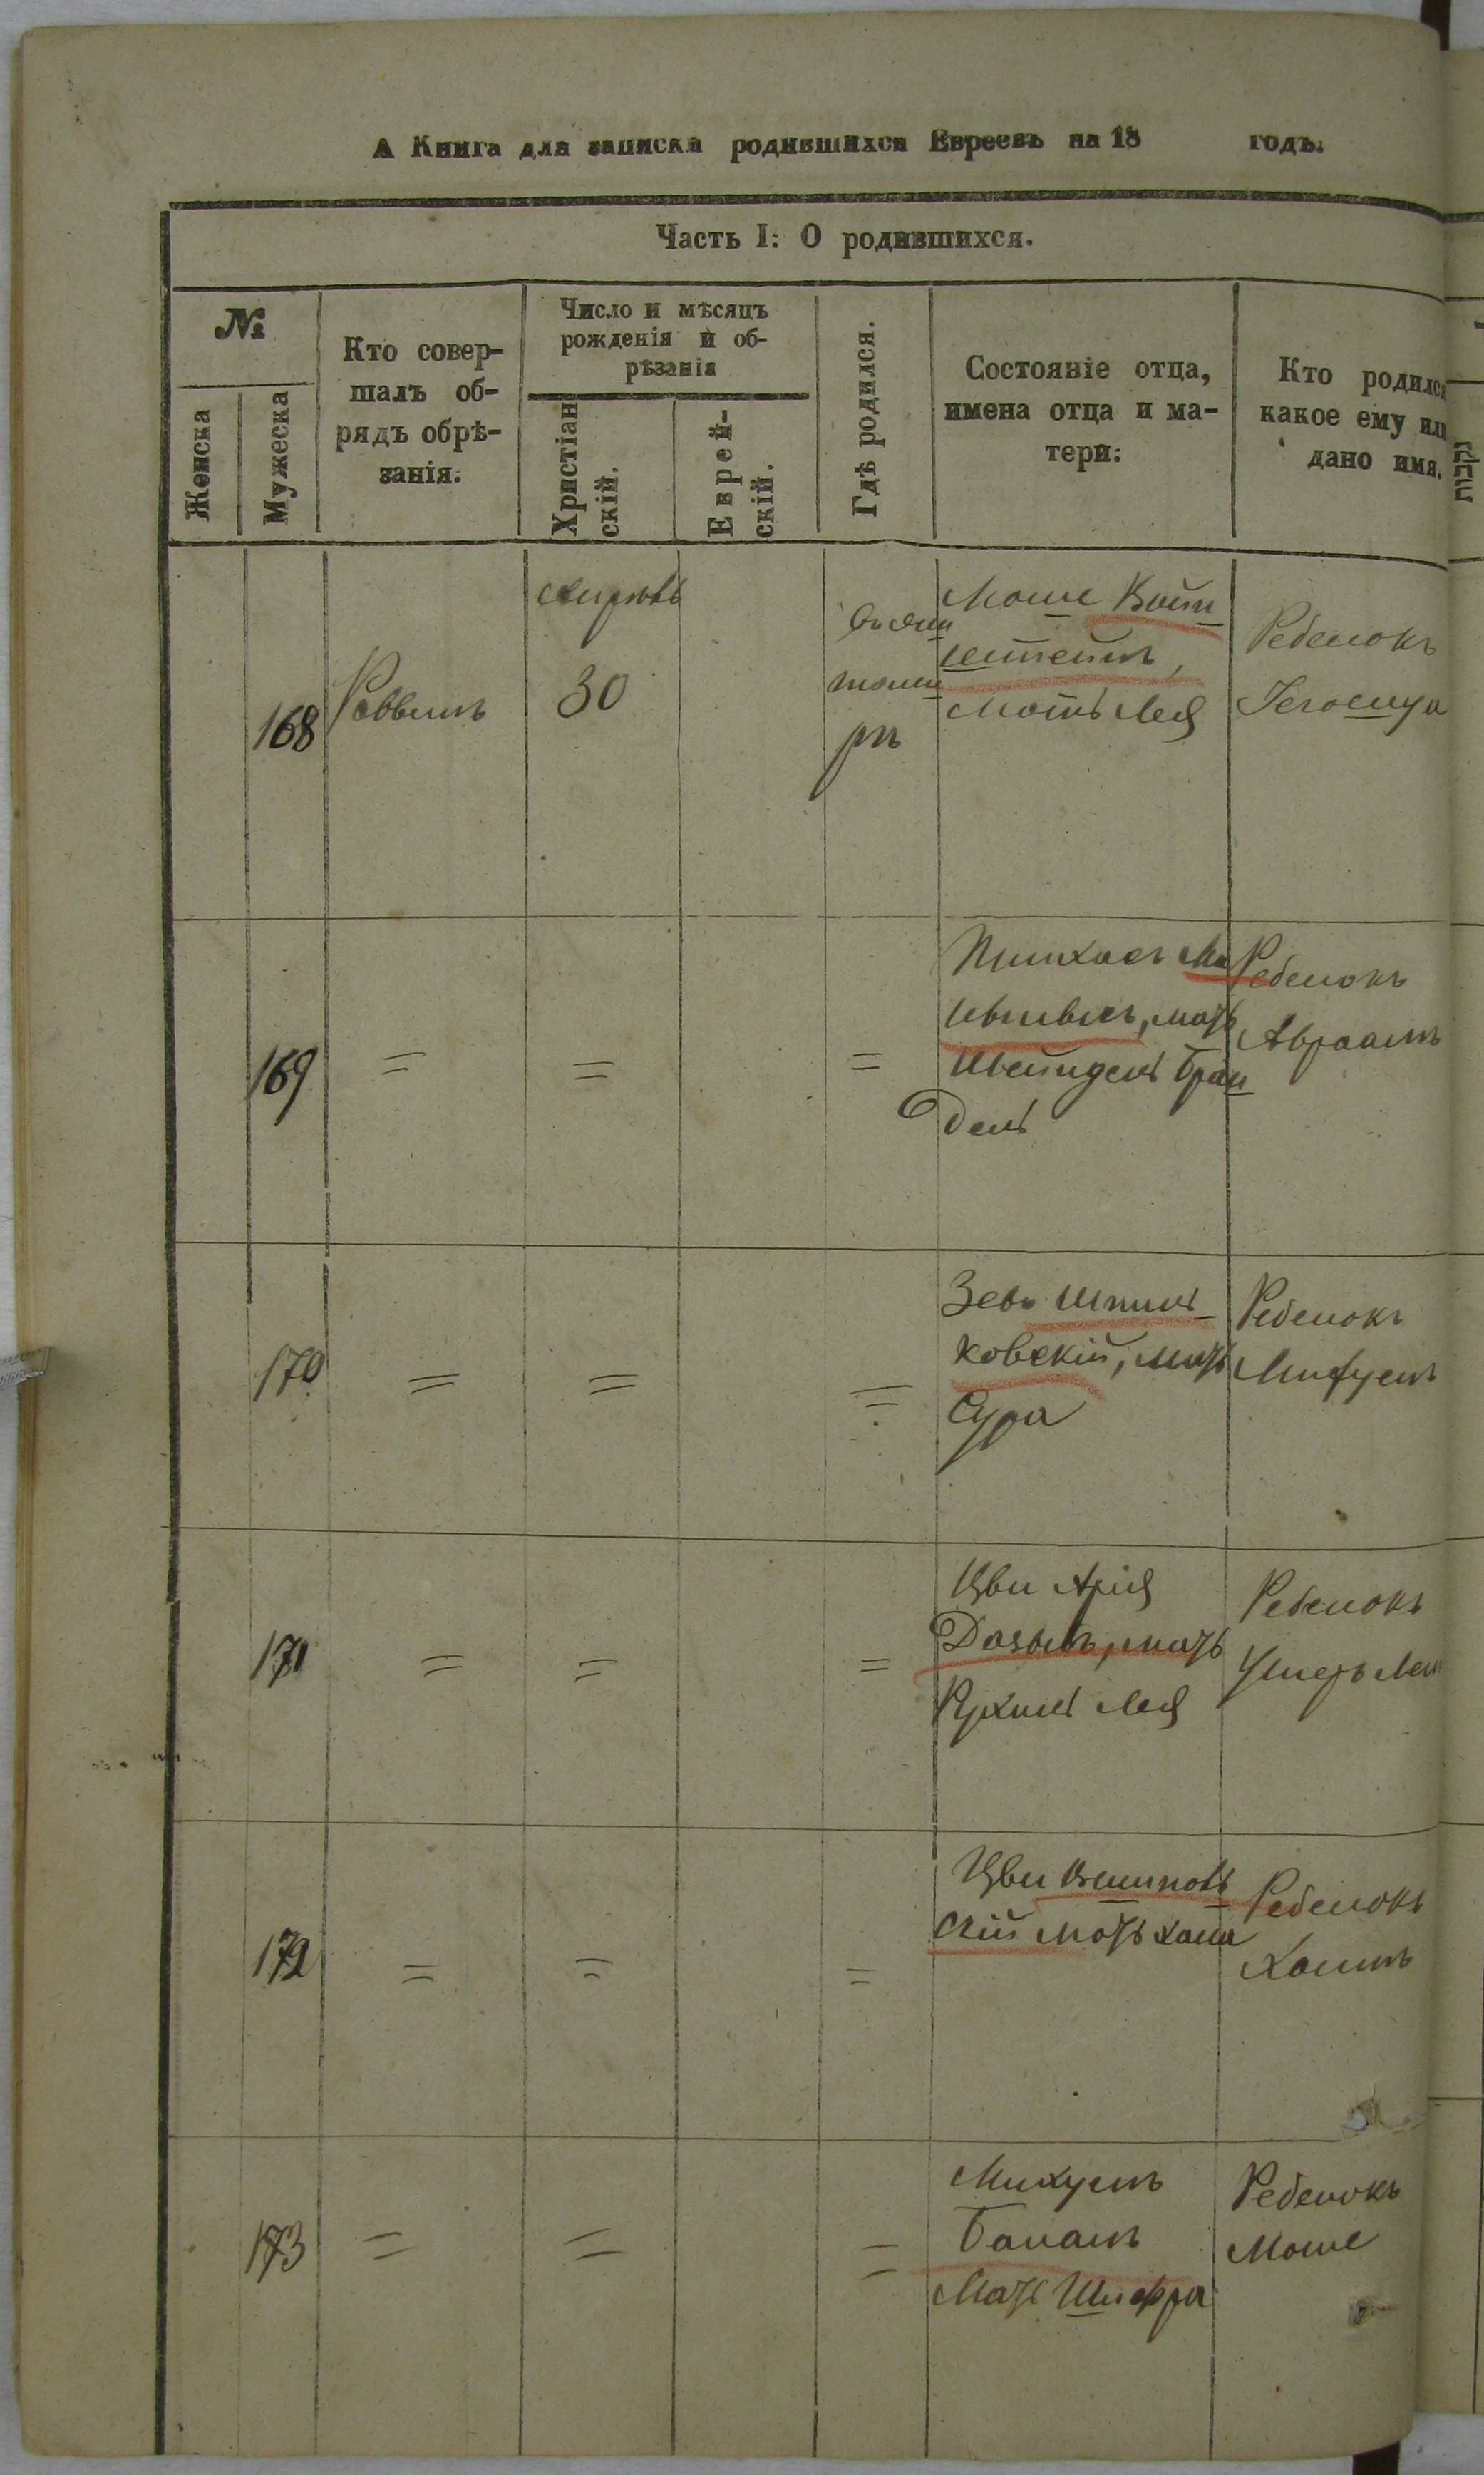 А Книга для записки родившихся Евреевъ на 18 годъ.
Часть I: О родившихся.
№
Женска
Мужеска
Кто совер-
шалъ об-
рядъ обрѣ-
занія.
Число и мѣсяцъ
рожденія и об-
рѣзанія
Христіан
скій.
Еврей-
скій.
Гдѣ родился.
Состояніе отца,
имена отца и ма-
тери:
Кто родилс
какое ему или
дано имя.
נקבות
168
Раввинъ
30
ръ
Моше Вайн
штейнъ,
Мать Лея
Ребенокъ
Іегошуа
169
=
=
=
Пинхасъ
мать
Шейндель Бран
дель
Ребенокъ
Авраамъ
170
=
=
=
Зевъ Шпиль
ковскій, мать
Сура
Ребенокъ
171
=
=
=
Цви Арія
мать
Рухиль Лея
Ребенокъ
172
=
=
=
Цви
скій мать Хана
Ребенокъ
Хаимъ
173
=
=
=
Михуель
Мать Шифра
Ребенокъ
Моше